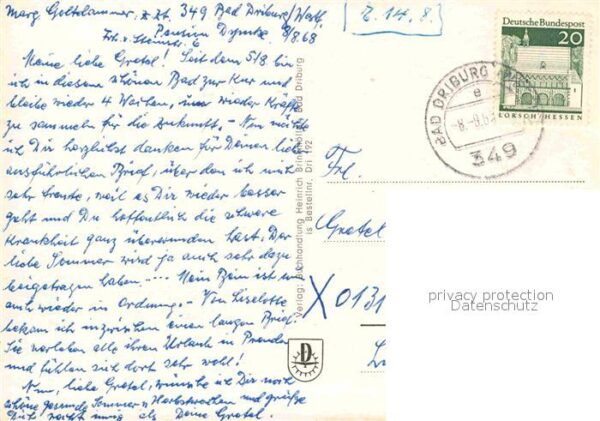 Marg. Goltdammer, z. Zt. 349 Bad Driburg/Westf.
Frh. v. Steinstr. 6 Pension 8/8.68
[z. 14.8.]
Meine liebe Gretel! Seit dem 5/8 bin
ich in diesem schönen Bad zur Kur und
bleibe wieder 4 Wochen, um wieder Kräfte
zu sammeln für die Zukunft. - Nun möchte
ich Dir herzlichst danken für Deinen lieben
ausführlichen Brief, über den ich mich
sehr freute, weil es Dir wieder besser
geht und Du hoffentlich die schwere
Krankheit ganz überwunden hast. Der
liebe Sommer wird ja auch sehr dazu
beigetragen haben --- Mein Bein ist nun
auch wieder in Ordnung. - Von Liselotte
bekam ich inzwischen einen langen Brief.
Sie verleben alle ihren Urlaub in
und fühlen sich dort sehr wohl!
Nun, liebe Gretel, wünsche ich Dir noch
schöne gesunde Sommer u Herbstwochen und grüße
Dich recht innig als Deine Gretel.
Verlag: Buchhandlung Heinrich Bad Driburg
is Bestellnr. Dri 192
Deutsche Bundespost
20
LORSCH/HESSEN
BAD DRIBURG
e
-8.-9.6
349
Frl.
Gretel
X 0131
D
privacy protection
Datenschutz